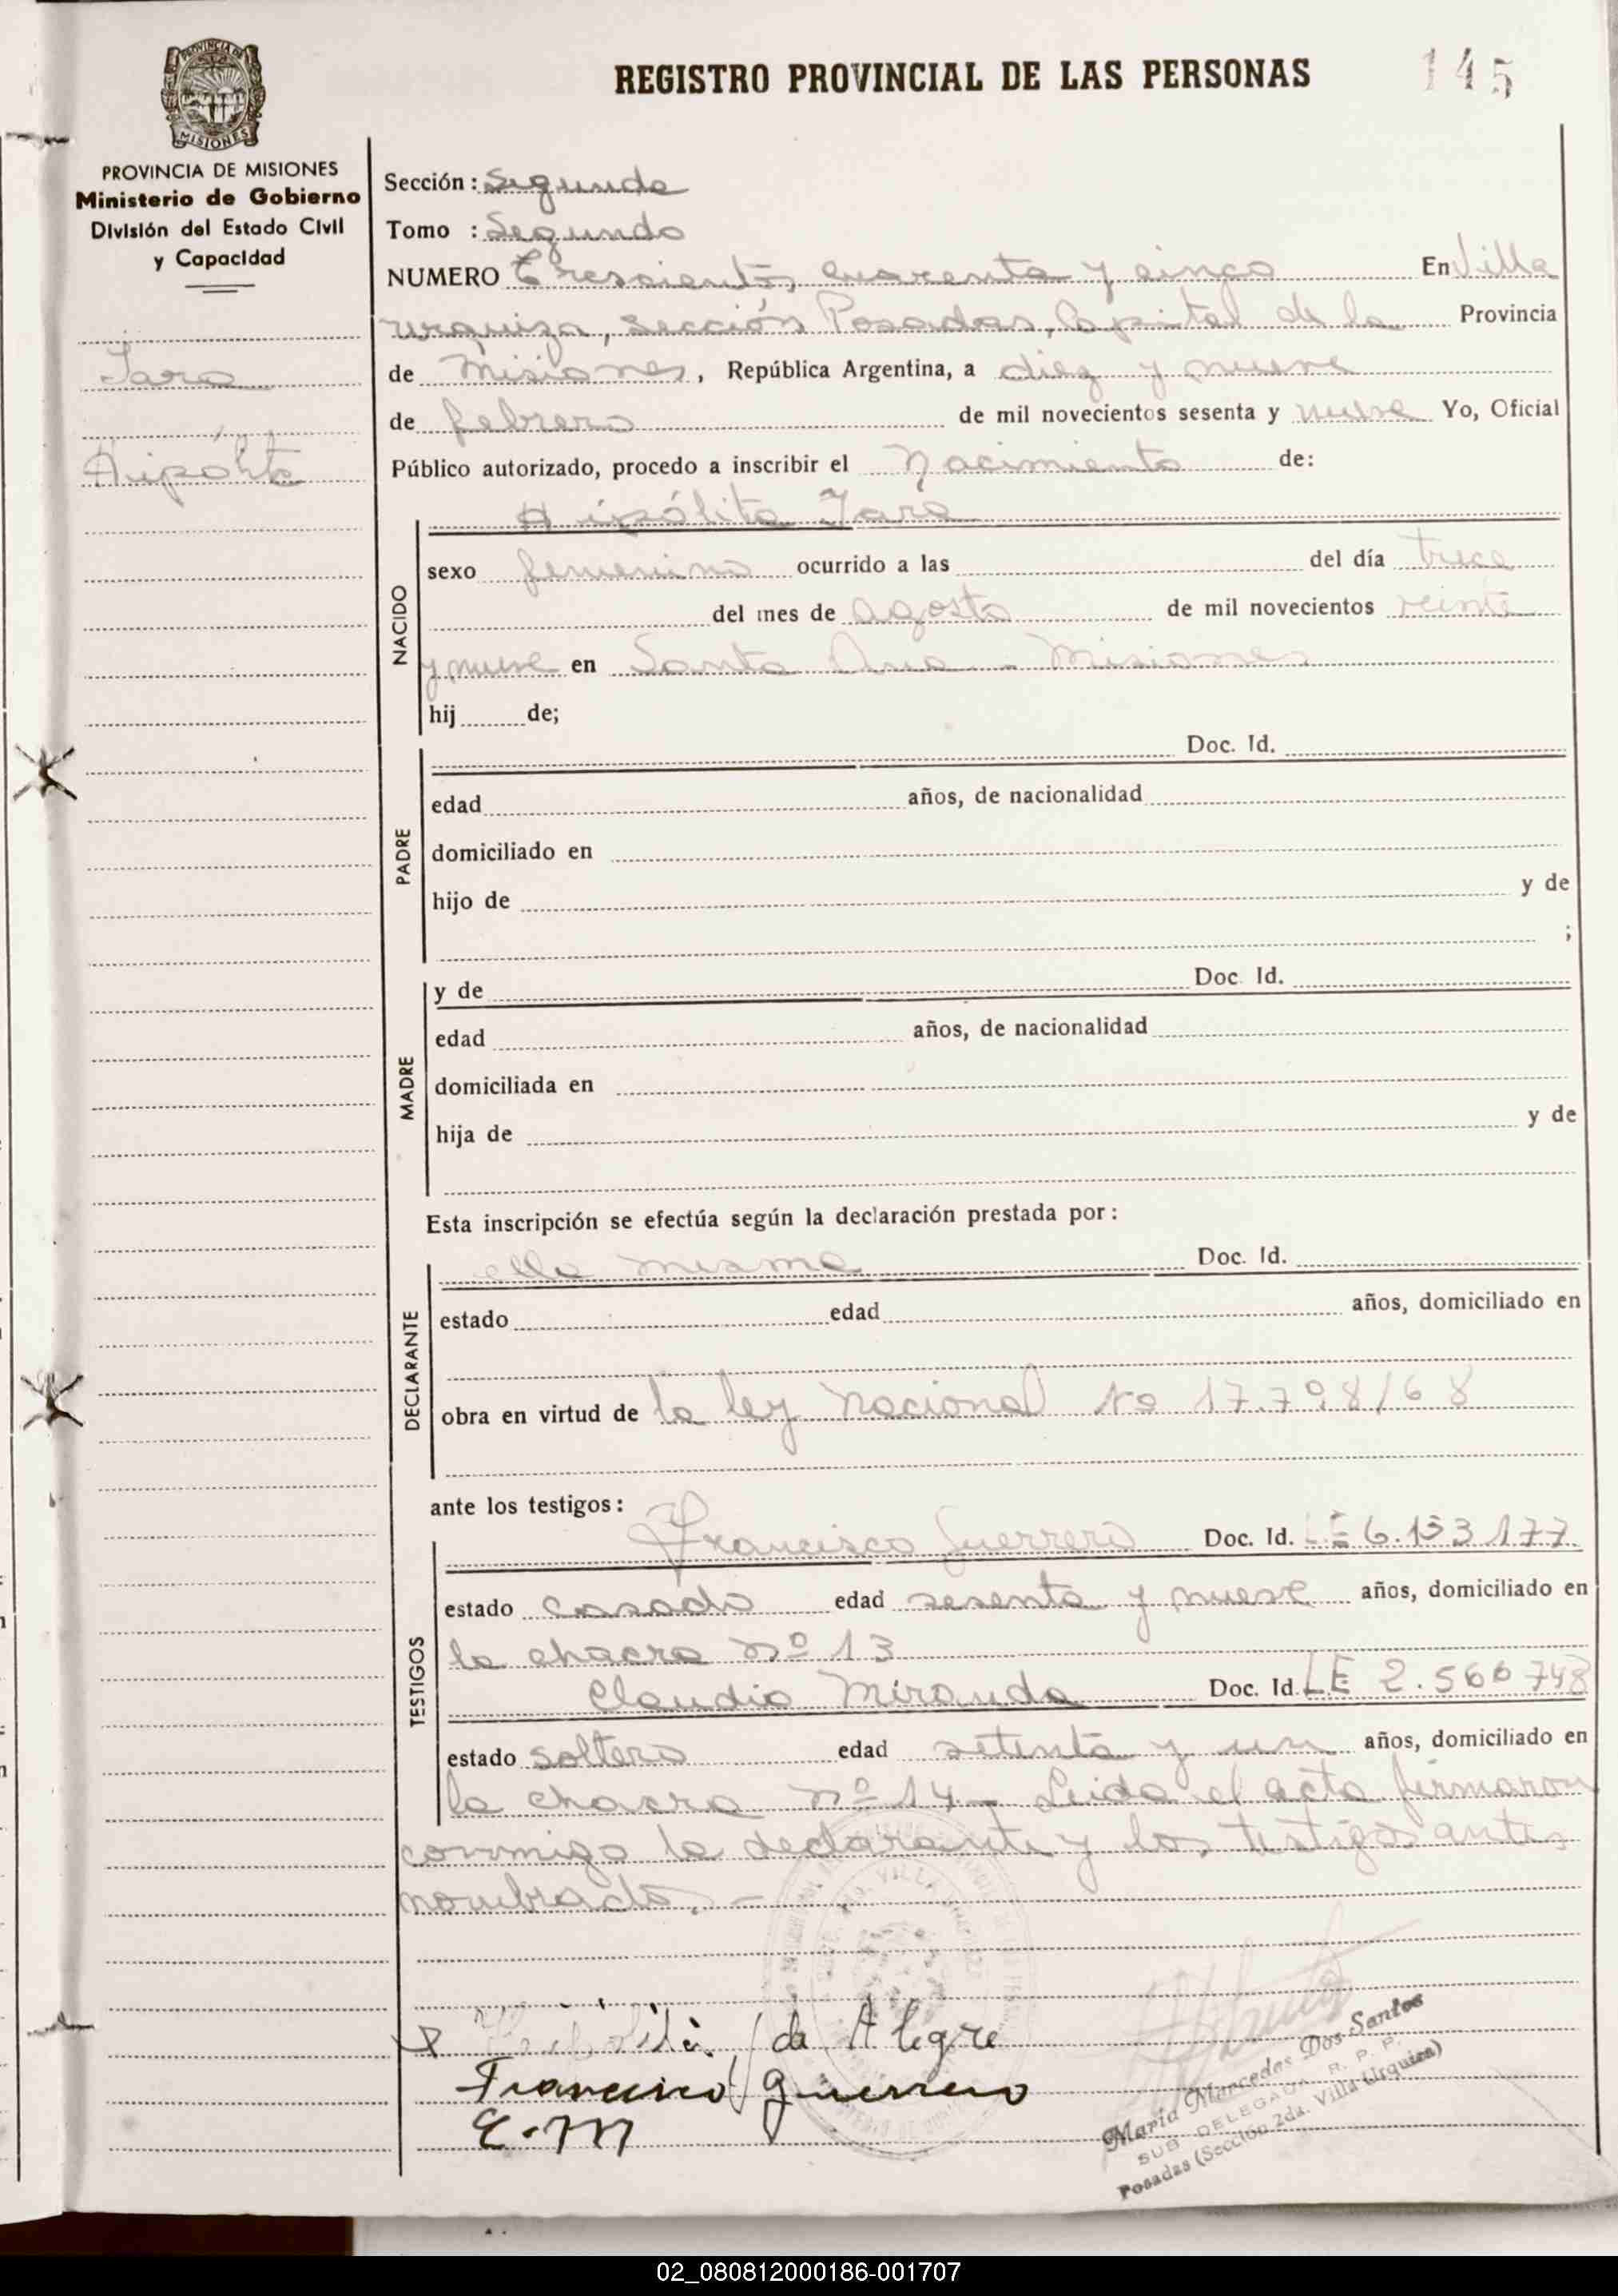 REGISTRO PROVINCIAL DE LAS PERSONAS
145
PROVINCIA DE
MISIONES
PROVINCIA DE MISIONES
Ministerio de Gobierno
División del Estado Civil
y Capacidad
Jara
Hipólita
Sección: Segunda
Tomo : Segundo
NUMERO Trescientos cuarenta y cinco En Villa
Urquiza, Sección Posadas, Capital de la Provincia
de Misiones, República Argentina, a diez y nueve
de febrero de mil novecientos sesenta y nueve Yo, Oficial
Público autorizado, procedo a inscribir el Nacimiento de:
NACIDO
Hipólita Jara
sexo femenino ocurrido a las del día trece
del mes de agosto de mil novecientos veinte
y nueve en Santa Ana - Misiones
hij de;
PADRE
Doc. Id.
edad años, de nacionalidad
domiciliado en
hijo de y de
;
MADRE
y de Doc. Id.
edad años, de nacionalidad
domiciliada en
hija de y de
Esta inscripción se efectúa según la declaración prestada por:
DECLARANTE
ella misma Doc. Id.
estado edad años, domiciliado en
obra en virtud de la ley nacional Nº 17.798/68
ante los testigos:
TESTIGOS
Francisco Guerrero Doc. Id. LE 6.153.177
estado casado edad sesenta y nueve años, domiciliado en
la chacra nº 13
Claudio Miranda Doc. Id. LE 2.566748
estado soltero edad setenta y un años, domiciliado en
la chacra nº 14 - Leida el acta firmaron
conmigo la declarante y los testigos antes
nombrados. -
de Alegre
Francisco Guerrero
C.M
María Mercedes Dos Santos
SUB DELEGADA R. P. P.
Posadas (Sección 2da. Villa Urquiza)
02_080812000186-001707